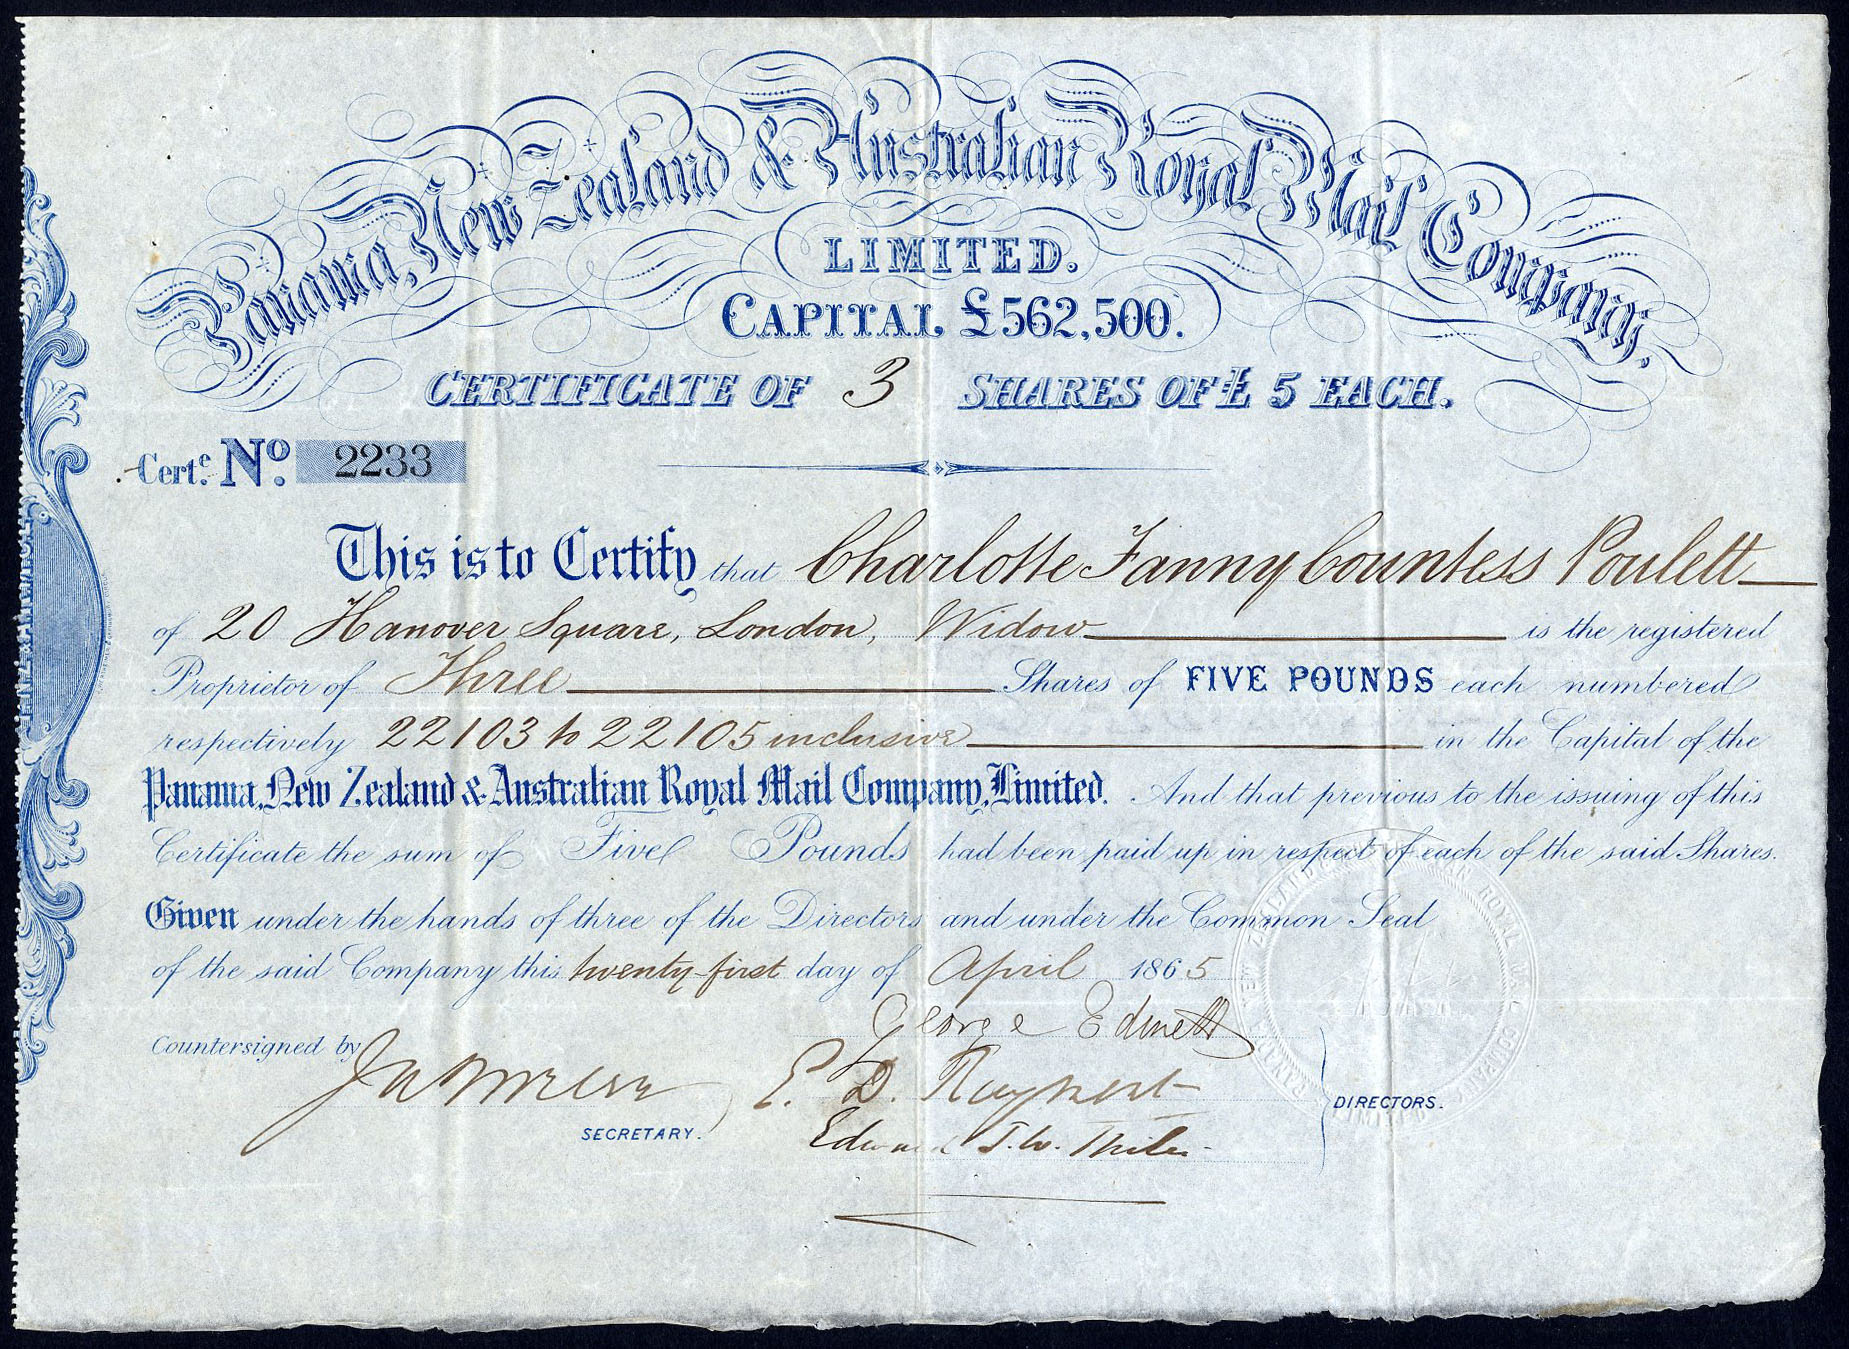 Panama, New Zealand & Australian Royal Mail Company,
LIMITED.
CAPITAL £562,500.
CERTIFICATE OF 3 SHARES OF £ 5 EACH.
Certe. No. 2233
This is to Certify that Charlotte Fanny Countess Poulett
of 20 Hanover Square, London, Widow is the registered
Proprietor of Three Shares of FIVE POUNDS each numbered
respectively 22103 to 22105 inclusive in the Capital of the
Panama, New Zealand & Australian Royal Mail Company, Limited. And that previous to the issuing of this
Certificate the sum of Five Pounds had been paid up in respect of each of the said Shares.
Given under the hands of three of the Directors and under the Common Seal
of the said Company this twenty-first day of April 1865
George
Countersigned by
E. D.
DIRECTORS.
SECRETARY.
Edward J. W.